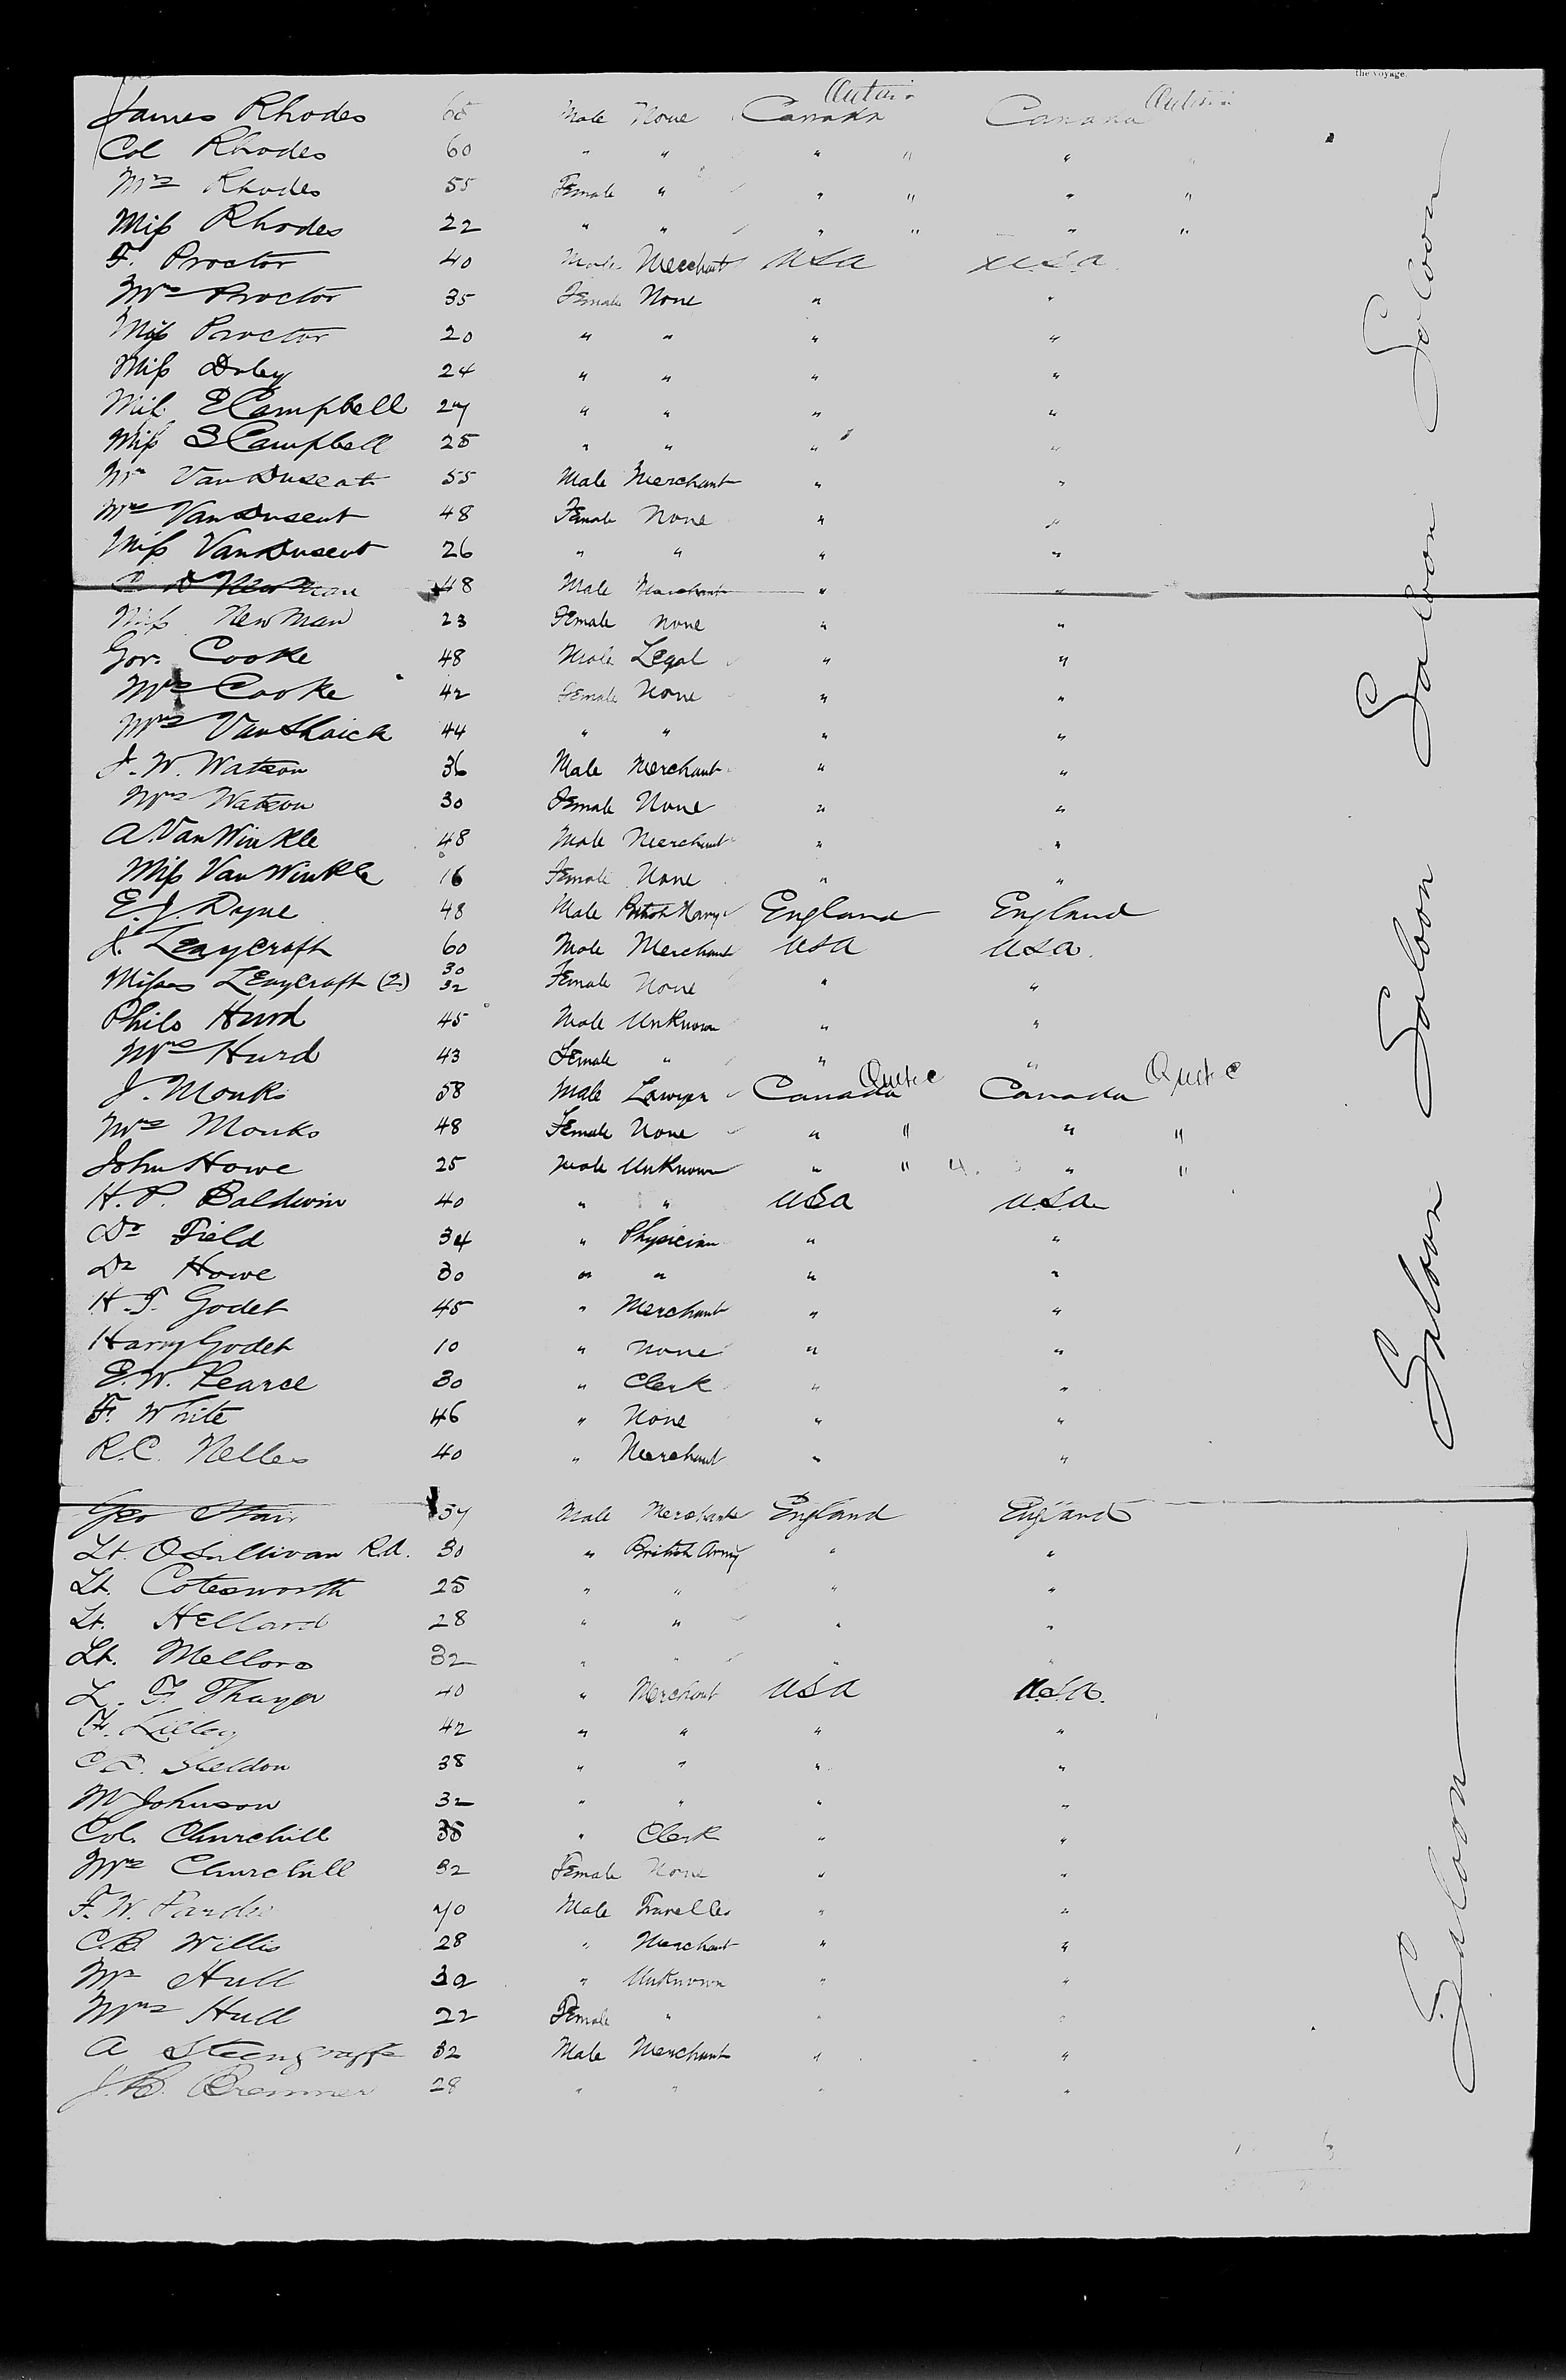 the voyage.
James Rhodes 65 Male None Canada Canada
Col Rhodes 60 " " " " "
Mrs Rhodes 55 Female " " " " "
Miss Rhodes 22 " " " " " "
F. Proctor 40 Male Merchant USA U.S.A.
Mrs Proctor 35 Female None " "
Miss Proctor 20 " " " "
Miss Doley 24 " " " "
Miss E Campbell 27 " " " "
Miss S Campbell 25 " " " "
Mr Van Dusent 55 Male Merchant " "
Mrs Van Dusent 48 Female None " "
Miss Van Dusent 26 " " " "
C D Newman 48 Male Merchant " "
Miss Newman 23 Female None " "
Gov. Cooke 48 Male Legal " "
Mrs Cooke 42 Female None " "
Mrs Van Shaick 44 " " " "
J. W. Watson 36 Male Merchant " "
Mrs Watson 30 Female None " "
A. Van Winkle 48 Male Merchant " "
Miss Van Winkle 16 Female None " "
E. J. Dyne 48 Male British Navy England England
J. Leaycroft 60 Male Merchant USA USA.
Misses Leaycroft (2) 30 32 Female None " "
Philo Hurd 45 Male Unknown " "
Mrs Hurd 43 Female " " "
J. Monks 58 Male Lawyer Canada Canada
Mrs Monks 48 Female None " " " "
John Howe 25 Male Unknown " " " "
H. P. Baldwin 40 " " USA U.S.A.
Dr Field 34 " Physician " "
Dr Howe 30 " " " "
H. T. Godet 45 " Merchant " "
Harry Godet 10 " None " "
E. W. Pearce 30 " Clerk " "
F. White 46 " None " "
R. C. Nelles 40 " Merchant " "
Geo Stair 57 Male Merchant England England
Lt. O'Sullivan R.A. 30 " British Army " "
Lt. Cotesworth 25 " " " "
Lt. Hellard 28 " " " "
Lt. Mellors 32 " " " "
L. F. Thayer 40 " Merchant USA U.S.A.
F. Lilley 42 " " " "
Sheldon 38 " " " "
M Johnson 32 " " " "
Col. Churchill 35 " Clerk " "
Mrs Churchill 32 Female None " "
F. W. Pardee 70 Male Traveller " "
C. B. Willis 28 " Merchant " "
Mr Hull 32 " Unknown " "
Mrs Hull 22 Female " " "
A Steengraffe 32 Male Merchant " "
J. B. Bremner 28 " " " "
Saloon
Saloon
Saloon
Saloon
Saloon